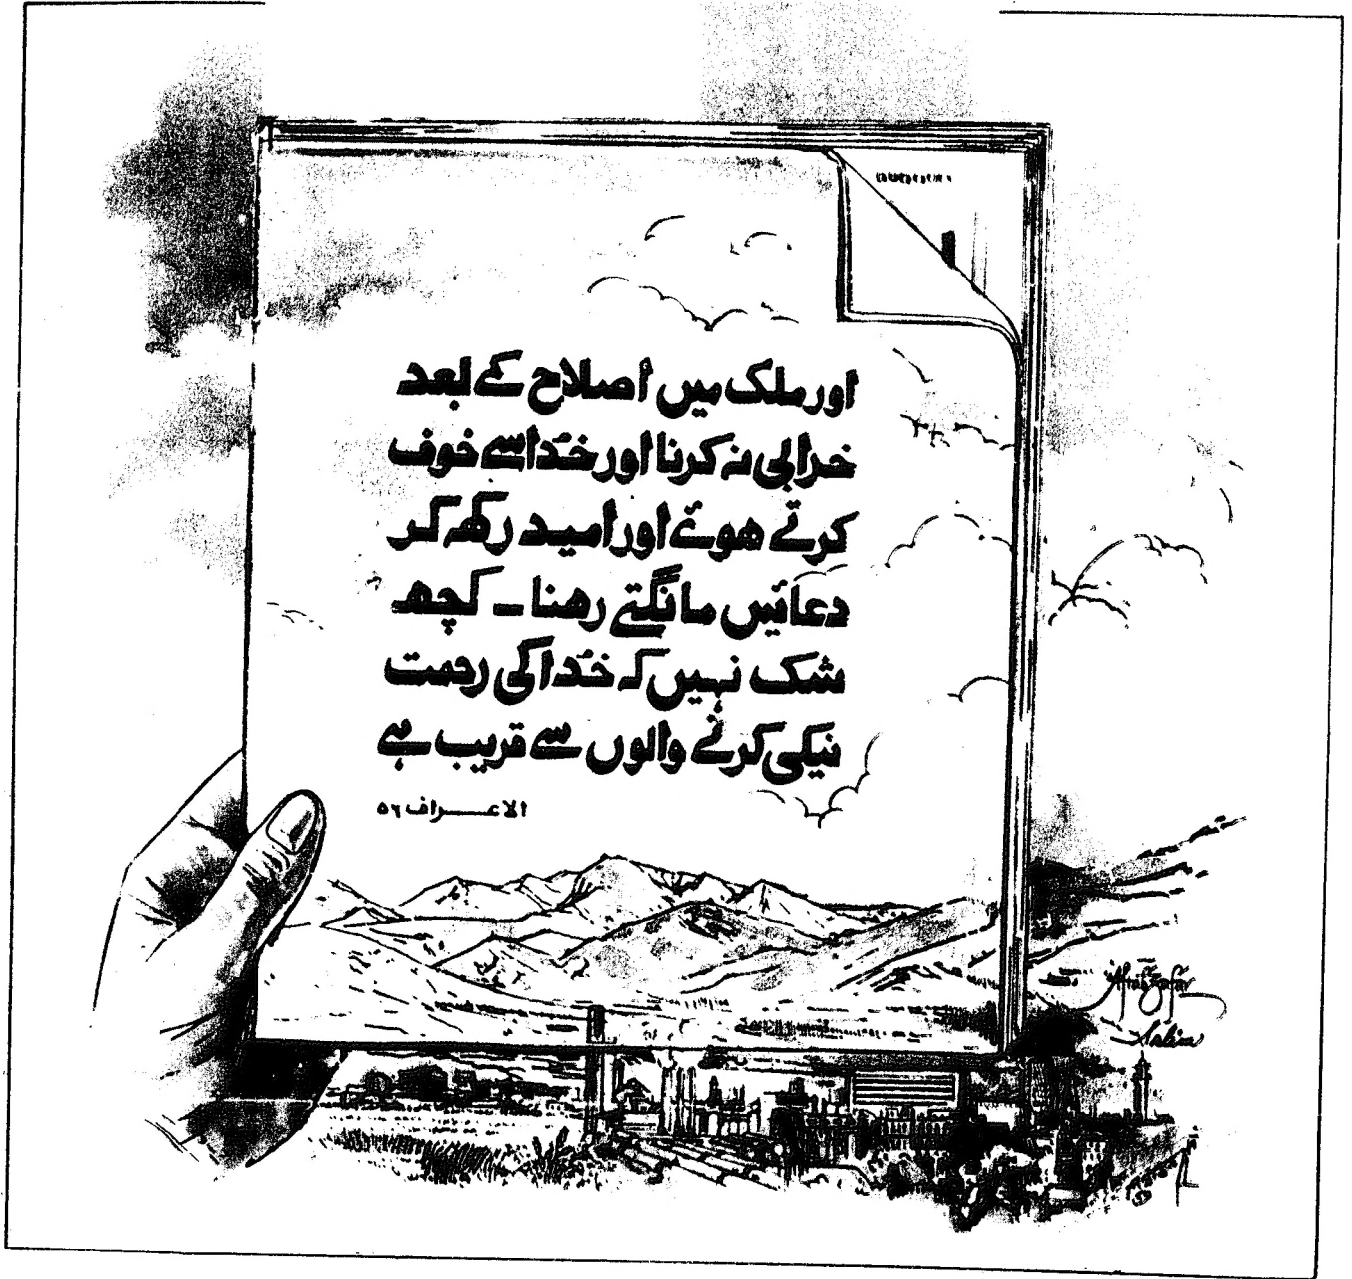 اور ملک میں اصلاح کے بعد
خرابی نہ کرنا اور خدا سے خوف
کرتے ہوئے اور امید رکھ کر
دعائیں مانگتے رہنا ۔ کچھ
شک نہیں کہ خدا کی رحمت
نیکی کرنے والوں سے قریب ہے
الاعراف ۵۶
Aftab Zafar